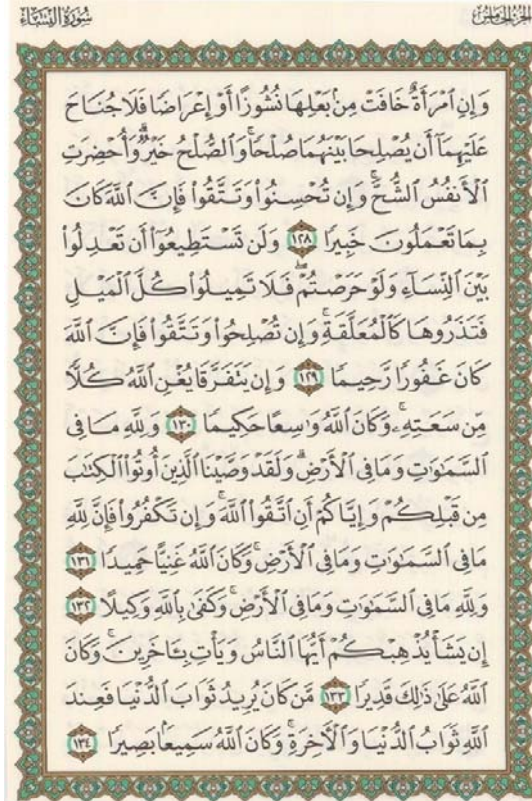 الجزء الخامس
سورة النساء
وَإِنِ ٱمۡرَأَةٌ خَافَتۡ مِنۢ بَعۡلِهَا نُشُوزًا أَوۡ إِعۡرَاضٗا فَلَا جُنَاحَ
عَلَيۡهِمَآ أَن يُصۡلِحَا بَيۡنَهُمَا صُلۡحٗاۚ وَٱلصُّلۡحُ خَيۡرٞۗ وَأُحۡضِرَتِ
ٱلۡأَنفُسُ ٱلشُّحَّۚ وَإِن تُحۡسِنُواْ وَتَتَّقُواْ فَإِنَّ ٱللَّهَ كَانَ
بِمَا تَعۡمَلُونَ خَبِيرٗا ١٢٨ وَلَن تَسۡتَطِيعُوٓاْ أَن تَعۡدِلُواْ
بَيۡنَ ٱلنِّسَآءِ وَلَوۡ حَرَصۡتُمۡۖ فَلَا تَمِيلُواْ كُلَّ ٱلۡمَيۡلِ
فَتَذَرُوهَا كَٱلۡمُعَلَّقَةِۚ وَإِن تُصۡلِحُواْ وَتَتَّقُواْ فَإِنَّ ٱللَّهَ
كَانَ غَفُورٗا رَّحِيمٗا ١٢٩ وَإِن يَتَفَرَّقَا يُغۡنِ ٱللَّهُ كُلّٗا
مِّن سَعَتِهِۦۚ وَكَانَ ٱللَّهُ وَٰسِعًا حَكِيمٗا ١٣٠ وَلِلَّهِ مَا فِي
ٱلسَّمَٰوَٰتِ وَمَا فِي ٱلۡأَرۡضِۗ وَلَقَدۡ وَصَّيۡنَا ٱلَّذِينَ أُوتُواْ ٱلۡكِتَٰبَ
مِن قَبۡلِكُمۡ وَإِيَّاكُمۡ أَنِ ٱتَّقُواْ ٱللَّهَۚ وَإِن تَكۡفُرُواْ فَإِنَّ لِلَّهِ
مَا فِي ٱلسَّمَٰوَٰتِ وَمَا فِي ٱلۡأَرۡضِۚ وَكَانَ ٱللَّهُ غَنِيًّا حَمِيدٗا ١٣١
وَلِلَّهِ مَا فِي ٱلسَّمَٰوَٰتِ وَمَا فِي ٱلۡأَرۡضِۚ وَكَفَىٰ بِٱللَّهِ وَكِيلًا ١٣٢
إِن يَشَأۡ يُذۡهِبۡكُمۡ أَيُّهَا ٱلنَّاسُ وَيَأۡتِ بِـَٔاخَرِينَۚ وَكَانَ
ٱللَّهُ عَلَىٰ ذَٰلِكَ قَدِيرٗا ١٣٣ مَّن كَانَ يُرِيدُ ثَوَابَ ٱلدُّنۡيَا فَعِندَ
ٱللَّهِ ثَوَابُ ٱلدُّنۡيَا وَٱلۡأٓخِرَةِۚ وَكَانَ ٱللَّهُ سَمِيعَۢا بَصِيرٗا ١٣٤